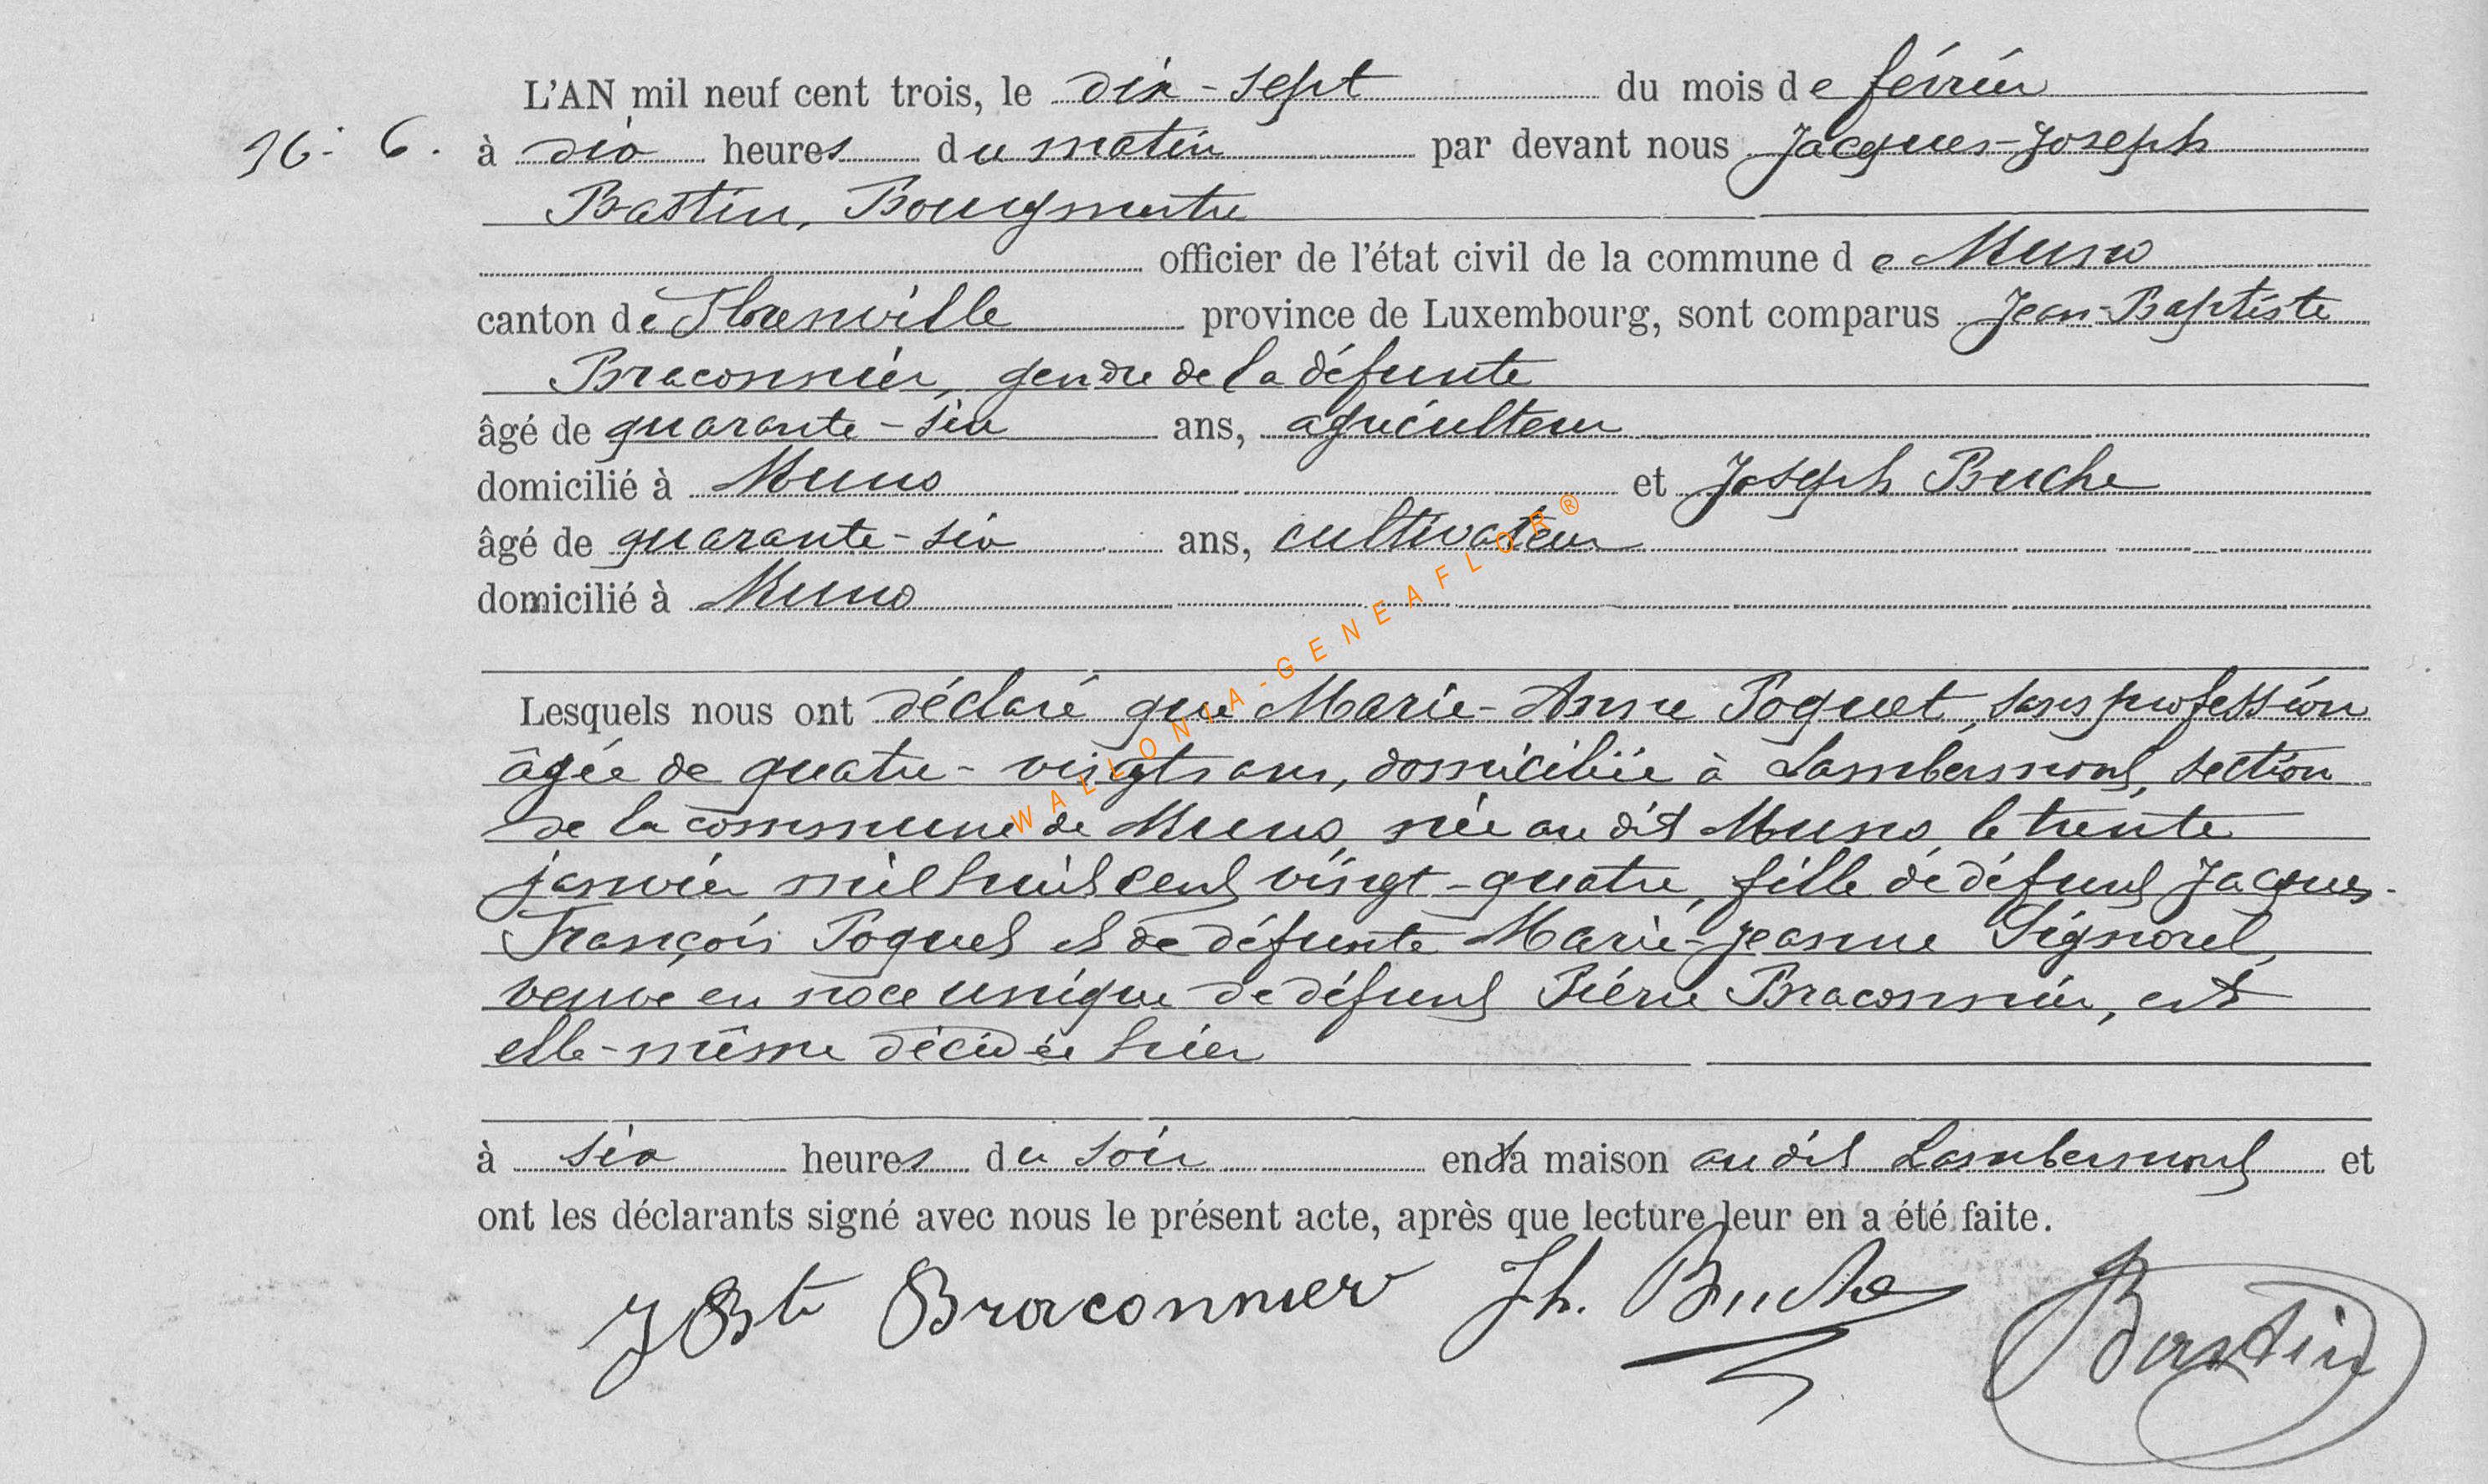 L'AN mil neuf cent trois, le dix-sept du mois de février
N° 6. à dix heures du matin par devant nous Jacques-Joseph
Bastin, Bourgmestre
officier de l'état civil de la commune de Muno
canton de Florenville province de Luxembourg, sont comparus Jean-Baptiste
Braconnier, gendre de la défunte
âgé de quarante-six ans, agriculteur
domicilié à Muno et Joseph Buche
âgé de quarante-six ans, cultivateur
domicilié à Muno
Lesquels nous ont déclaré que Marie-Anne Poquet, sans profession
âgée de quatre-vingts ans, domiciliée à Lambermont, section
de la commune de Muno, née au dit Muno, le trente
janvier mil huit cent vingt-quatre, fille de défunt Jacques-
François Poquet et de défunte Marie-Jeanne Pignorel,
veuve en noce unique de défunt Piérre Braconnier, est
elle-même décédée hier
à six heures du soir en sa maison au dit Lambermont et
ont les déclarants signé avec nous le présent acte, après que lecture leur en a été faite.
J Bte Braconnier Jh. Buche Bastin
WALLONIA-GENEAFLOR®